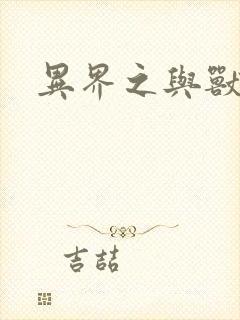 異界之與獸
吉喆